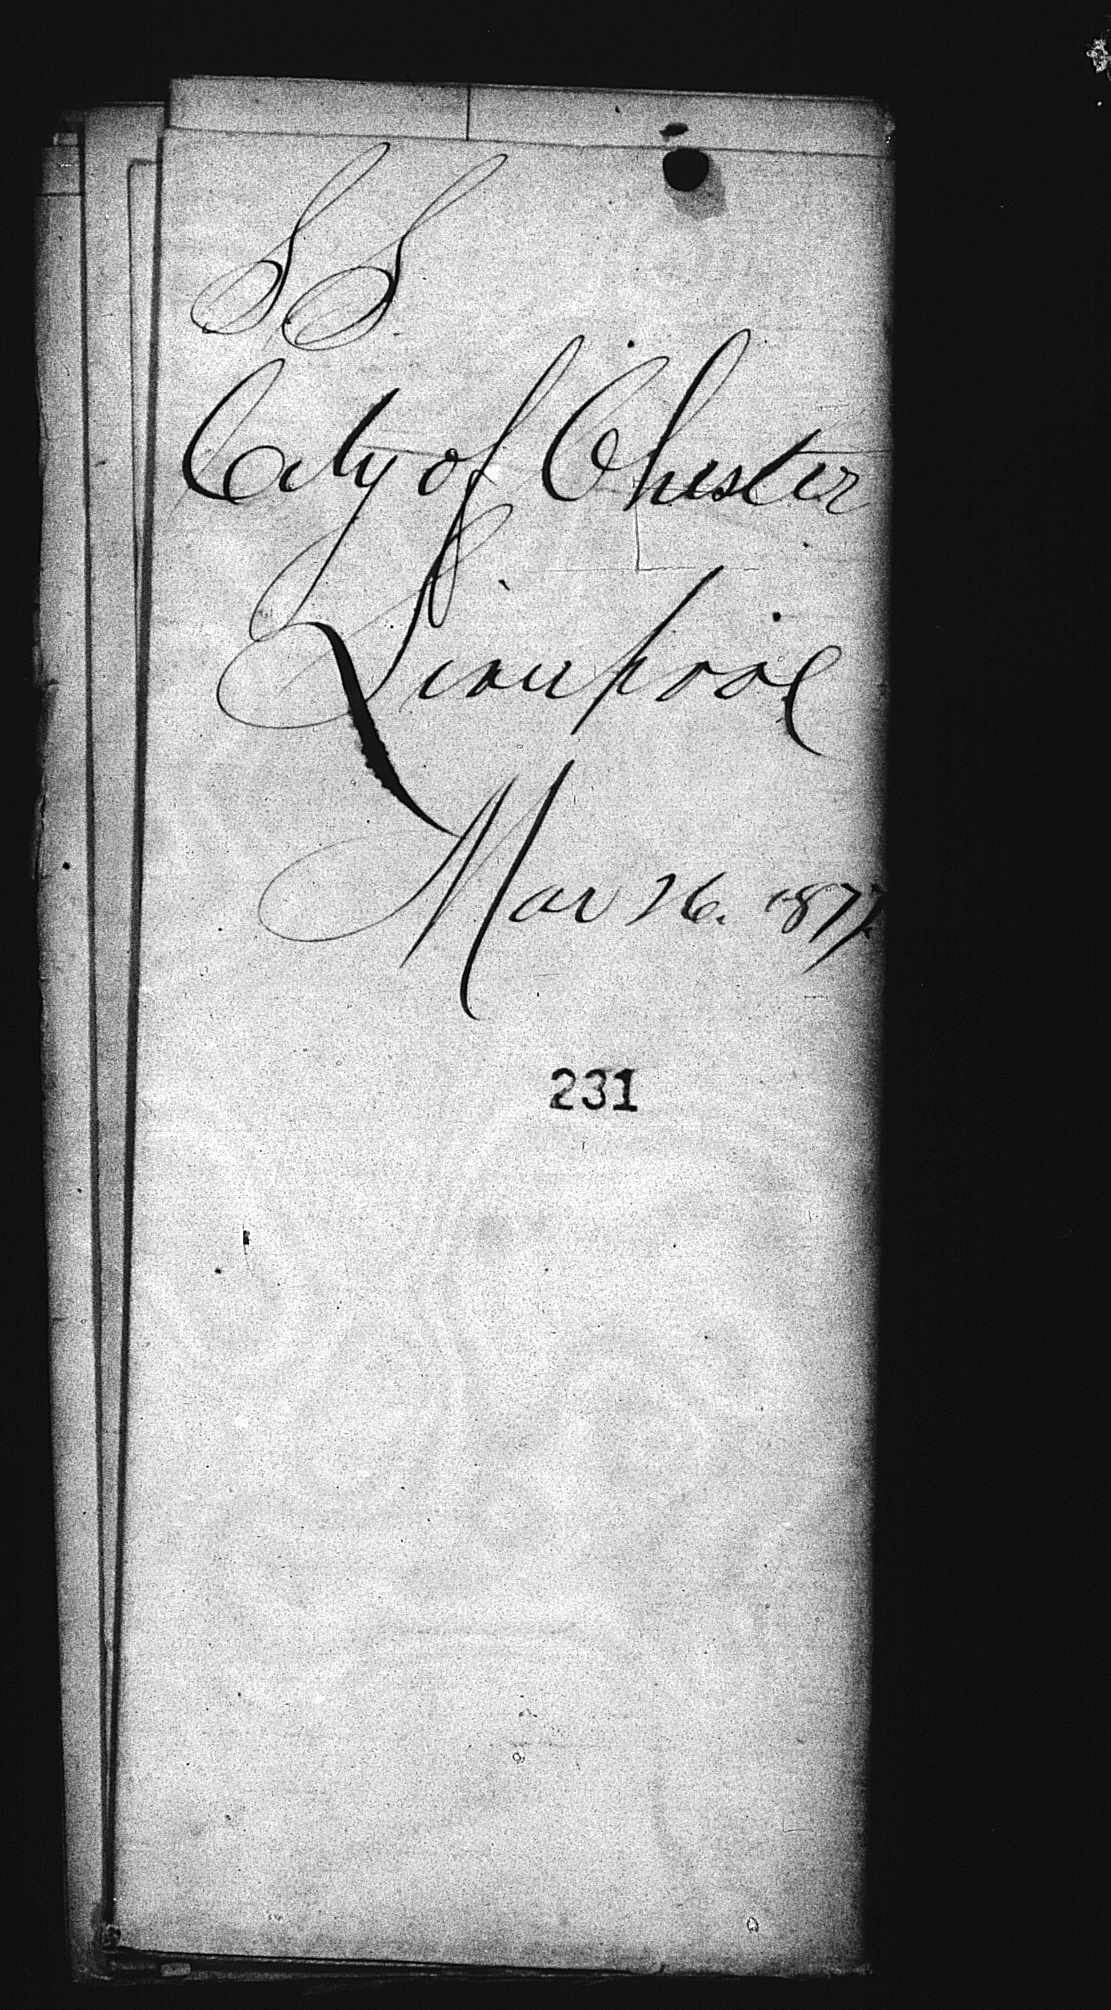 SS.
City of Chester
Liverpool
Mar 26. 1877.
231